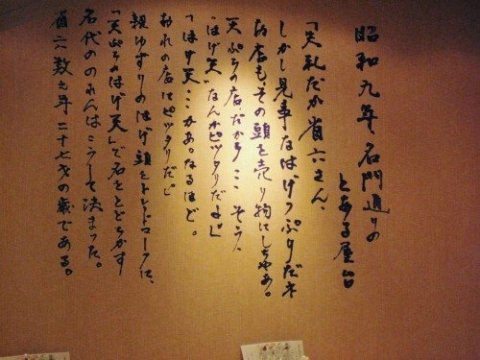 昭和九年、名門通りの
とある屋台
「失礼だが省六さん、
しかし見事なはげっぷりだネ
お店も、その頭を売り物にしちゃあ。
天ぷらの店だから、そう、
"はげ天"なんかピッタリだよ」
「はげ天」かあ。なるほど。
おれの店にピッタリだ」
親ゆずりのはげ頭をトレードマークに、
「天ぷらのはげ天」で名をとどろかす
名代ののれんはこうして決まった。
省六数え年二十七才の義である。